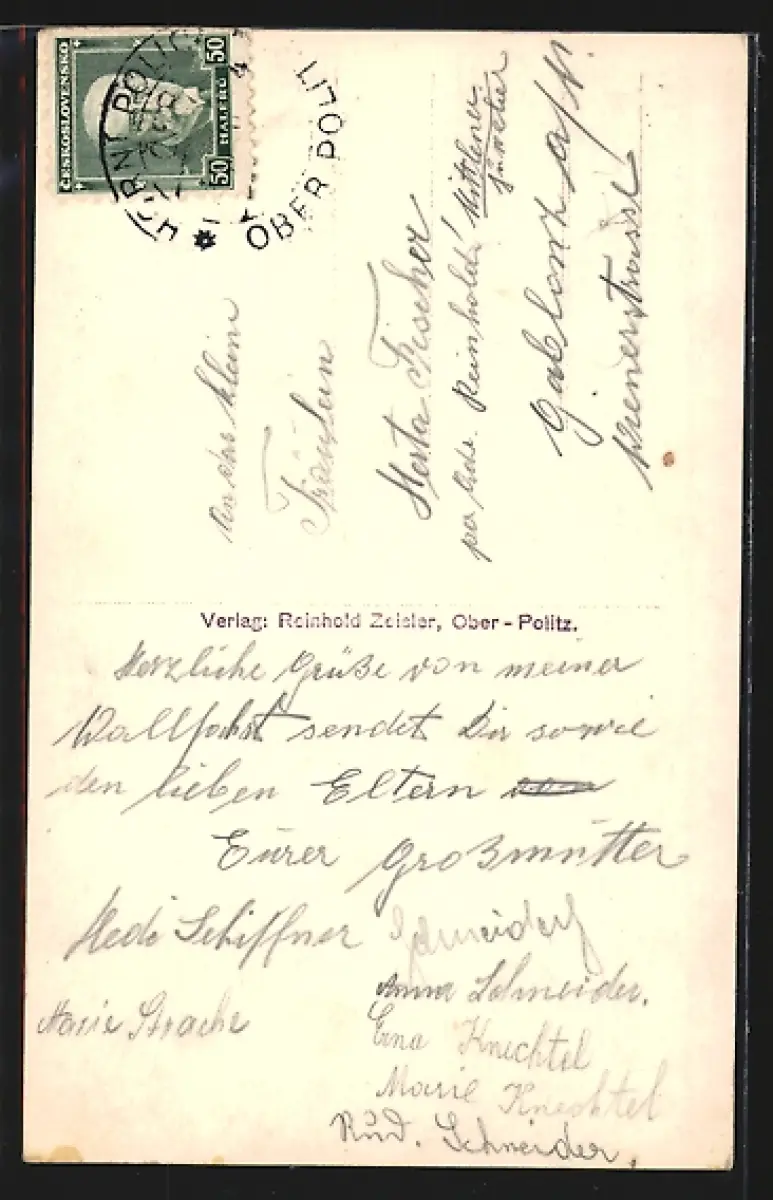 ČESKOSLOVENSKO
50 HALÉŘŮ 50
HORNÍ POLICE
OBER POLITZ
An das klein
Fräulein
Herta Fischer
per Adr. Reinhold
Gablonz a/N.
Wienerstrasse
Verlag: Reinhold Zeisler, Ober-Politz.
Herzliche Grüße von meiner
Wallfahrt sendet Dir sowie
den lieben Eltern
Eurer Großmutter
Hedi Schiffner
Anna Schneider.
Marie Strache
Erna Knechtel
Marie Knechtel
Rud. Schneider.